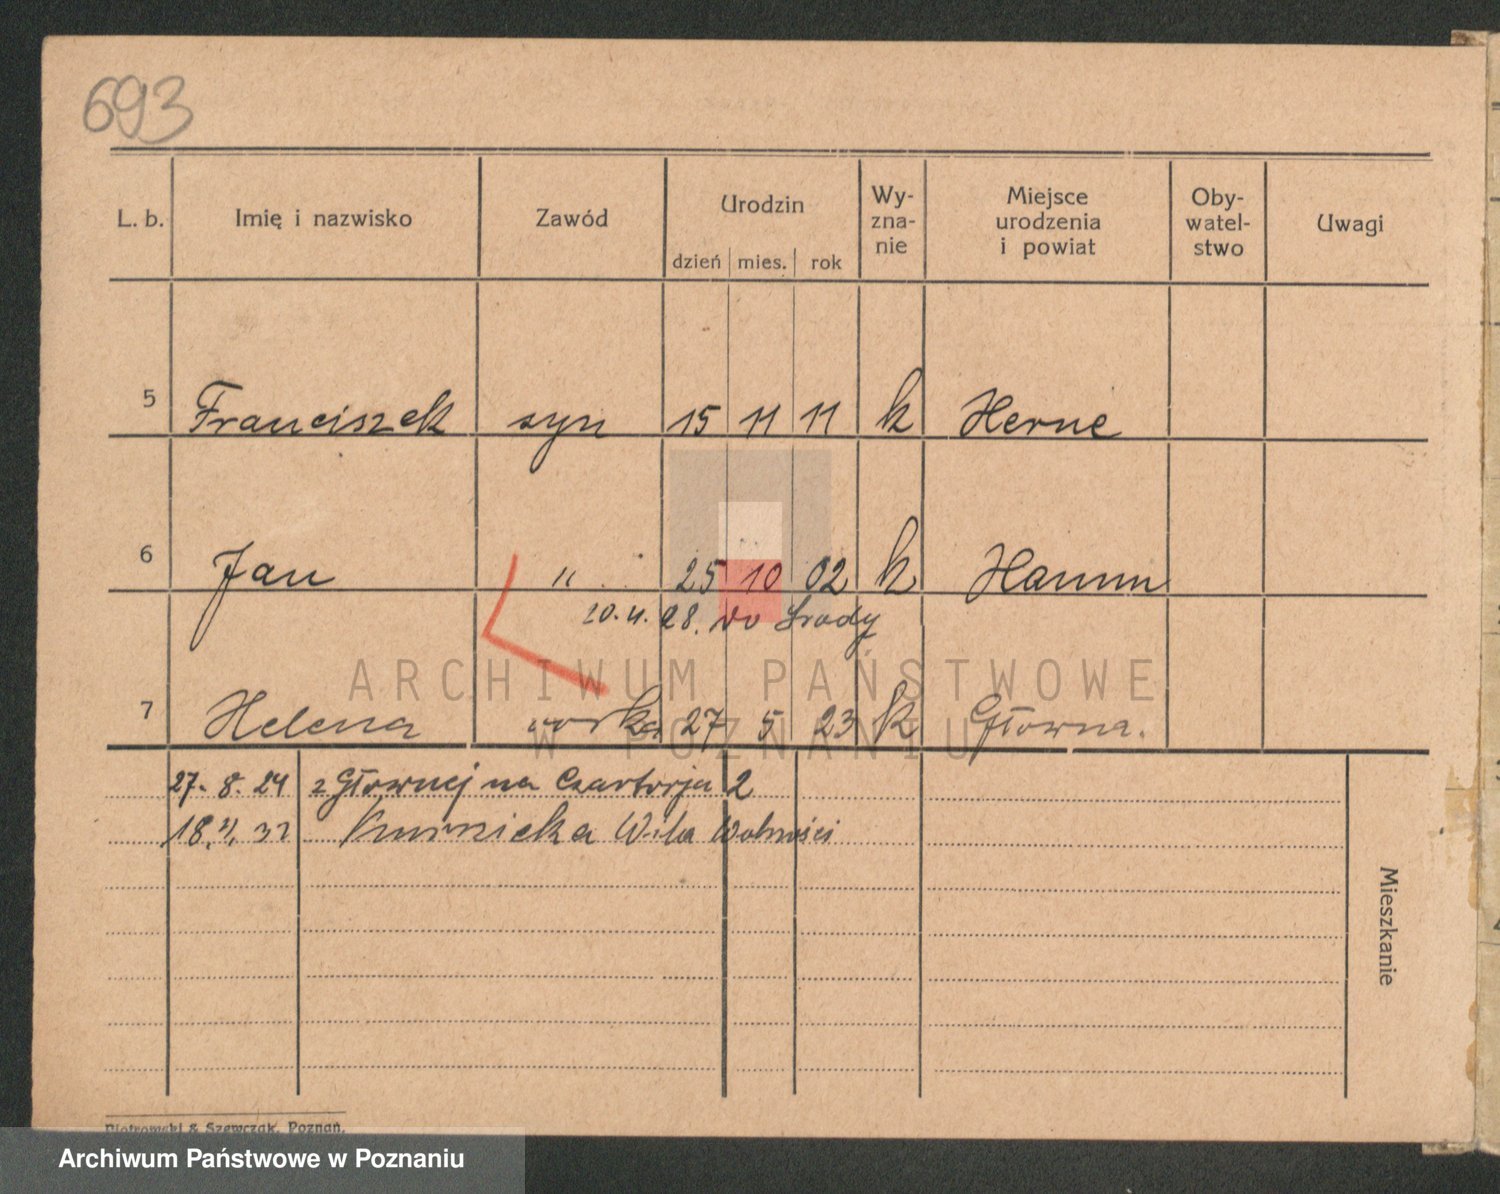 693
L. b. Imię i nazwisko Zawód Urodzin dzień mies. rok Wy-zna-nie Miejsce urodzenia i powiat Oby-watel-stwo Uwagi
5 Franciszek syn 15 11 11 k Herne
6 Jan " 25 10 02 k Hamm
20. 4. 28. do Środy
7 Helena córka 27 5 23 k Główna.
27. 8. 24 z Głównej na Czartorja 2
18. 32 Kurnicka Willa Wolności
Mieszkanie
Piotrowski & Szewczak, Poznań.
ARCHIWUM PAŃSTWOWE
W POZNANIU
Archiwum Państwowe w Poznaniu